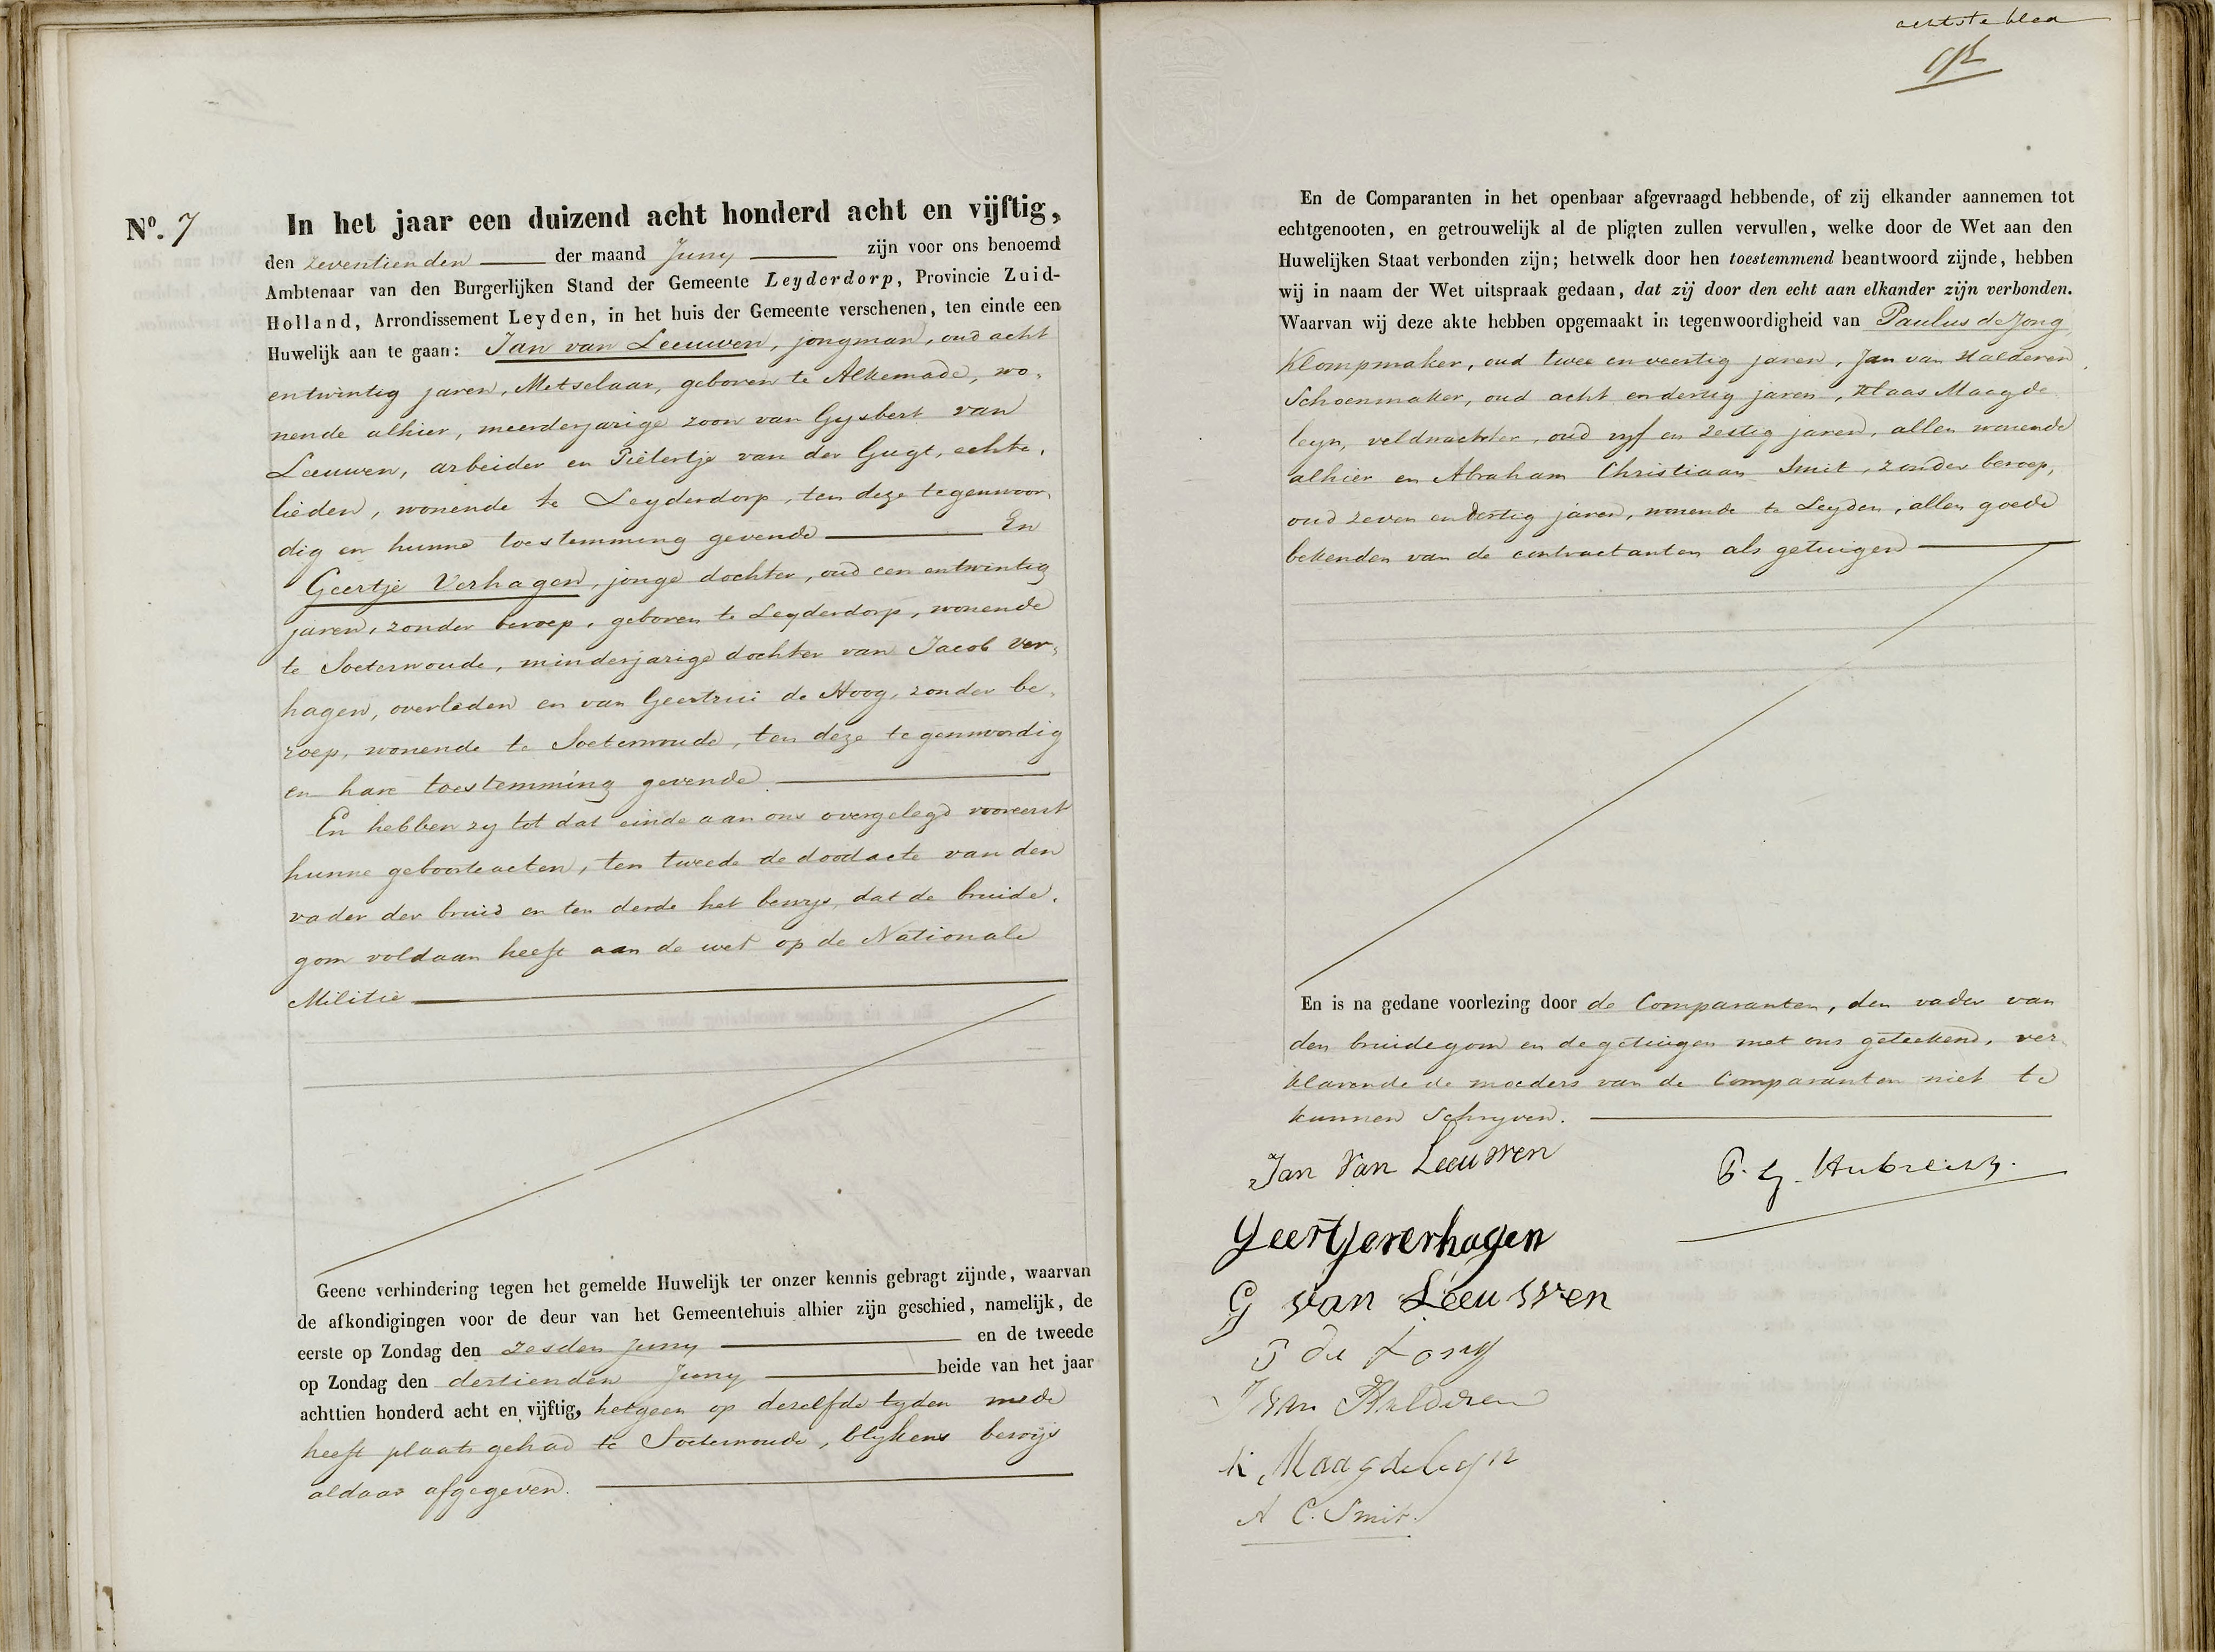 Nº. 7
In het jaar een duizend acht honderd acht en vijftig,
den zeventienden der maand Juny zijn voor ons benoemd
Ambtenaar van den Burgerlijken Stand der Gemeente Leyderdorp, Provincie Zuid-
Holland, Arrondissement Leyden, in het huis der Gemeente verschenen, ten einde een
Huwelijk aan te gaan: Jan van Leeuwen, jongman, oud acht
entwintig jaren, Metselaar, geboren te Alkemade, wo-
nende alhier, meerderjarige zoon van Gysbert van
Leeuwen, arbeider en Pietertje van der Gugt, echte-
lieden, wonende te Leyderdorp, ten deze tegenwoor-
dig en hunne toestemming gevende En
Geertje Verhagen, jonge dochter, oud een entwintig
jaren, zonder beroep, geboren te Leyderdorp, wonende
te Soeterwoude, minderjarige dochter van Jacob Ver-
hagen, overleden en van Geertrui de Hoog, zonder be-
roep, wonende te Soeterwoude, ten deze tegenwoordig
en hare toestemming gevende.
En hebben zy tot dat einde aan ons overgelegd vooreerst
hunne geboorteacten, ten tweede de doodacte van den
vader der bruid en ten derde het bewys, dat de bruide-
gom voldaan heeft aan de wet op de Nationale
Militie
Geene verhindering tegen het gemelde Huwelijk ter onzer kennis gebragt zijnde, waarvan
de afkondigingen voor de deur van het Gemeentehuis alhier zijn geschied, namelijk, de
eerste op Zondag den zesden Juny en de tweede
op Zondag den dertienden Juny beide van het jaar
achttien honderd acht en vijftig, hetgeen op derzelfde tyden mede
heeft plaats gehad te Soeterwoude, blykens bewijs
aldaar afgegeven.
achtste blad
En de Comparanten in het openbaar afgevraagd hebbende, of zij elkander aannemen tot
echtgenooten, en getrouwelijk al de pligten zullen vervullen, welke door de Wet aan den
Huwelijken Staat verbonden zijn; hetwelk door hen toestemmend beantwoord zijnde, hebben
wij in naam der Wet uitspraak gedaan, dat zij door den echt aan elkander zijn verbonden.
Waarvan wij deze akte hebben opgemaakt in tegenwoordigheid van Paulus de Jong
Klompmaker, oud twee en veertig jaren, Jan van Halderen
Schoenmaker, oud acht endertig jaren, Klaas Maegde
leyn, veldwachter, oud vyf en zestig jaren, allen wonende
alhier en Abraham Christiaan Smit, zonder beroep,
oud zeven endertig jaren, wonende te Leyden, allen goede
bekenden van de contractanten als getuigen
En is na gedane voorlezing door de Comparanten, den vader van
den bruidegom en de getuigen met ons geteekend, ver-
klarende de moeders van de Comparanten niet te
kunnen schryven.
Jan Van Leeuwen
P. G. Hubrecht.
Geertje verhagen
G van Leeuwen
P de Jong
J van Halderen
K. Maagdeleyn
A C. Smit.